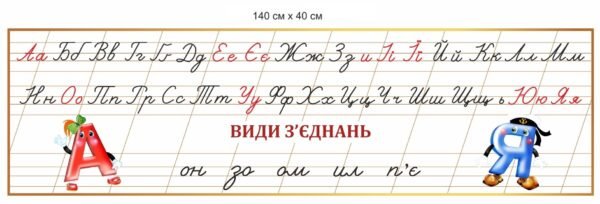 140 см x 40 см
Аа Бб Вв Гг Ґґ Дд Ее Єє Жж Зз и Іі Її Йй Кк Лл Мм
Нн Оо Пп Рр Сс Тт Уу Фф Хх Цц Чч Шш Щщ ь Юю Яя
ВИДИ З’ЄДНАНЬ
А он зо ом ил п’є Я